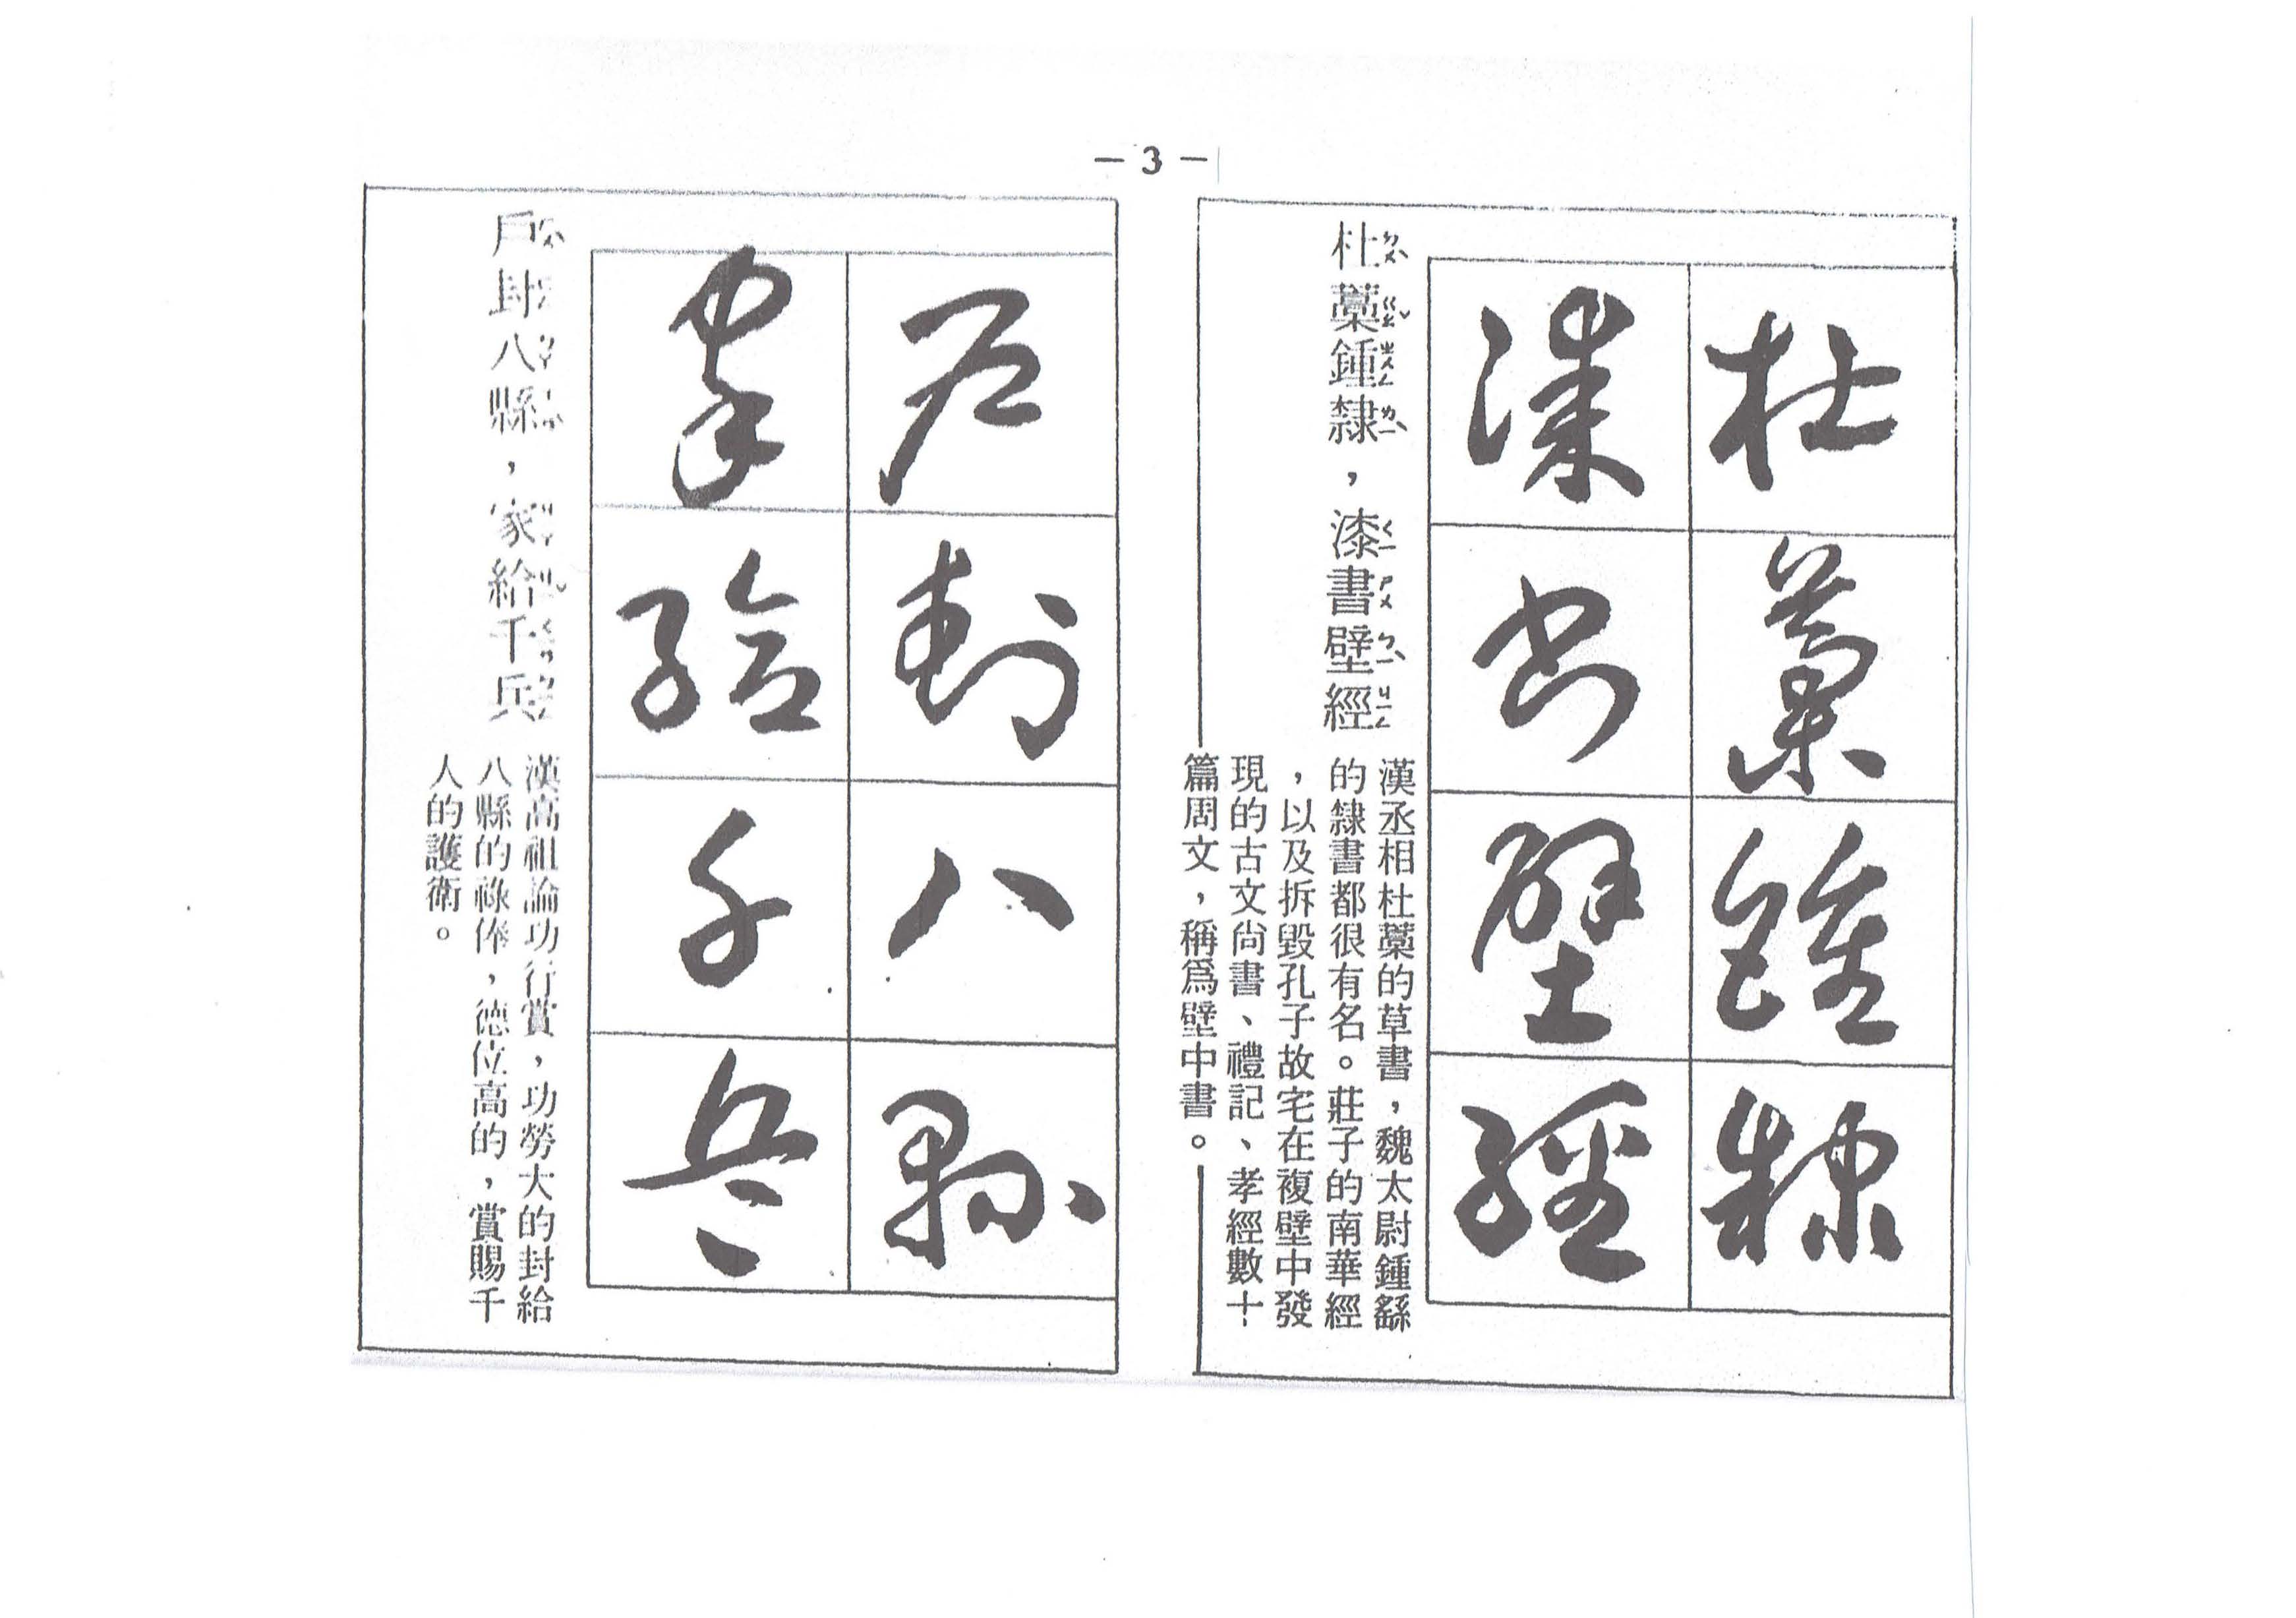 — 3 —
杜藁鍾隸
漆書壁經
杜藁鍾隸，漆書壁經
漢丞相杜藁的草書，魏太尉鍾繇
的隸書都很有名。莊子的南華經
，以及拆毀孔子故宅在複壁中發
現的古文尚書、禮記、孝經數十
篇周文，稱爲壁中書。
戶封八縣
家給千兵
戶封八縣，家給千兵
漢高祖論功行賞，功勞大的封給
八縣的祿俸，德位高的，賞賜千
人的護衛。